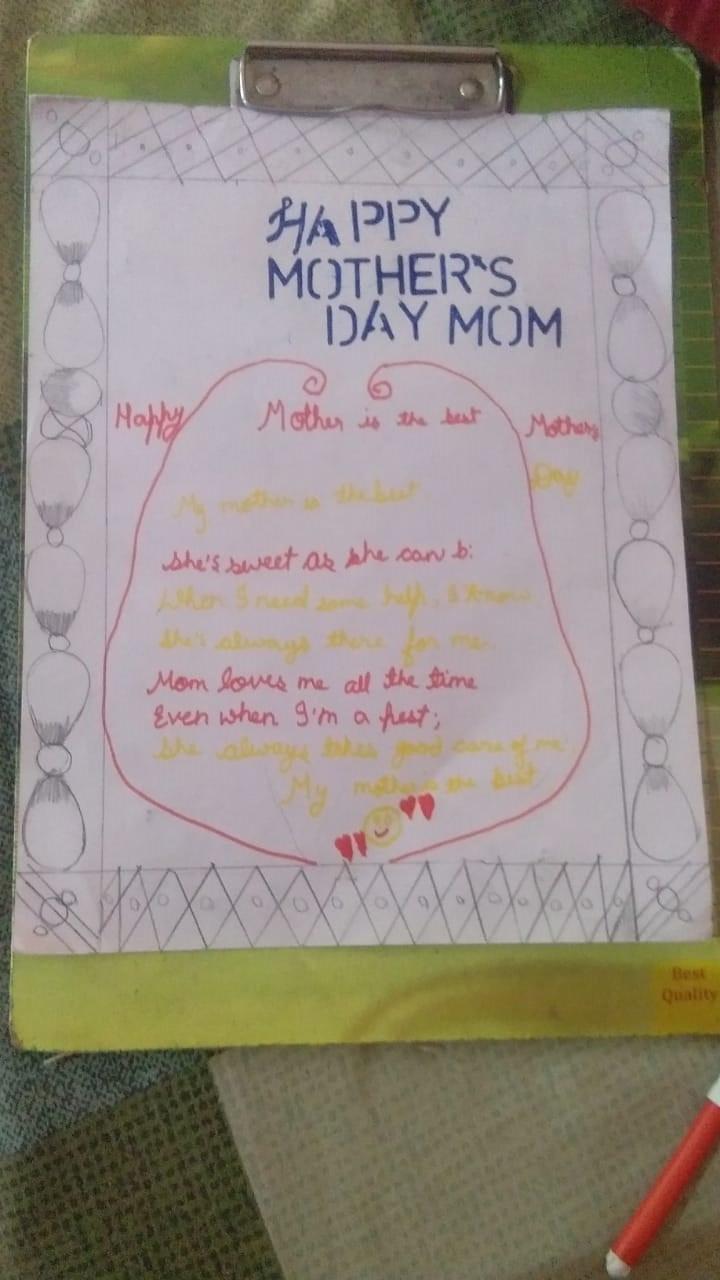 HAPPY
MOTHER'S
DAY MOM
Happy
Mother is the best
Mothers
Day
My mother is the best
She's sweet as she can b:
When I need some help, I know
She's always there for me.
Mom loves me all the time
Even when I'm a pest;
She always takes good care of me
My mother is the best
Best
Quality